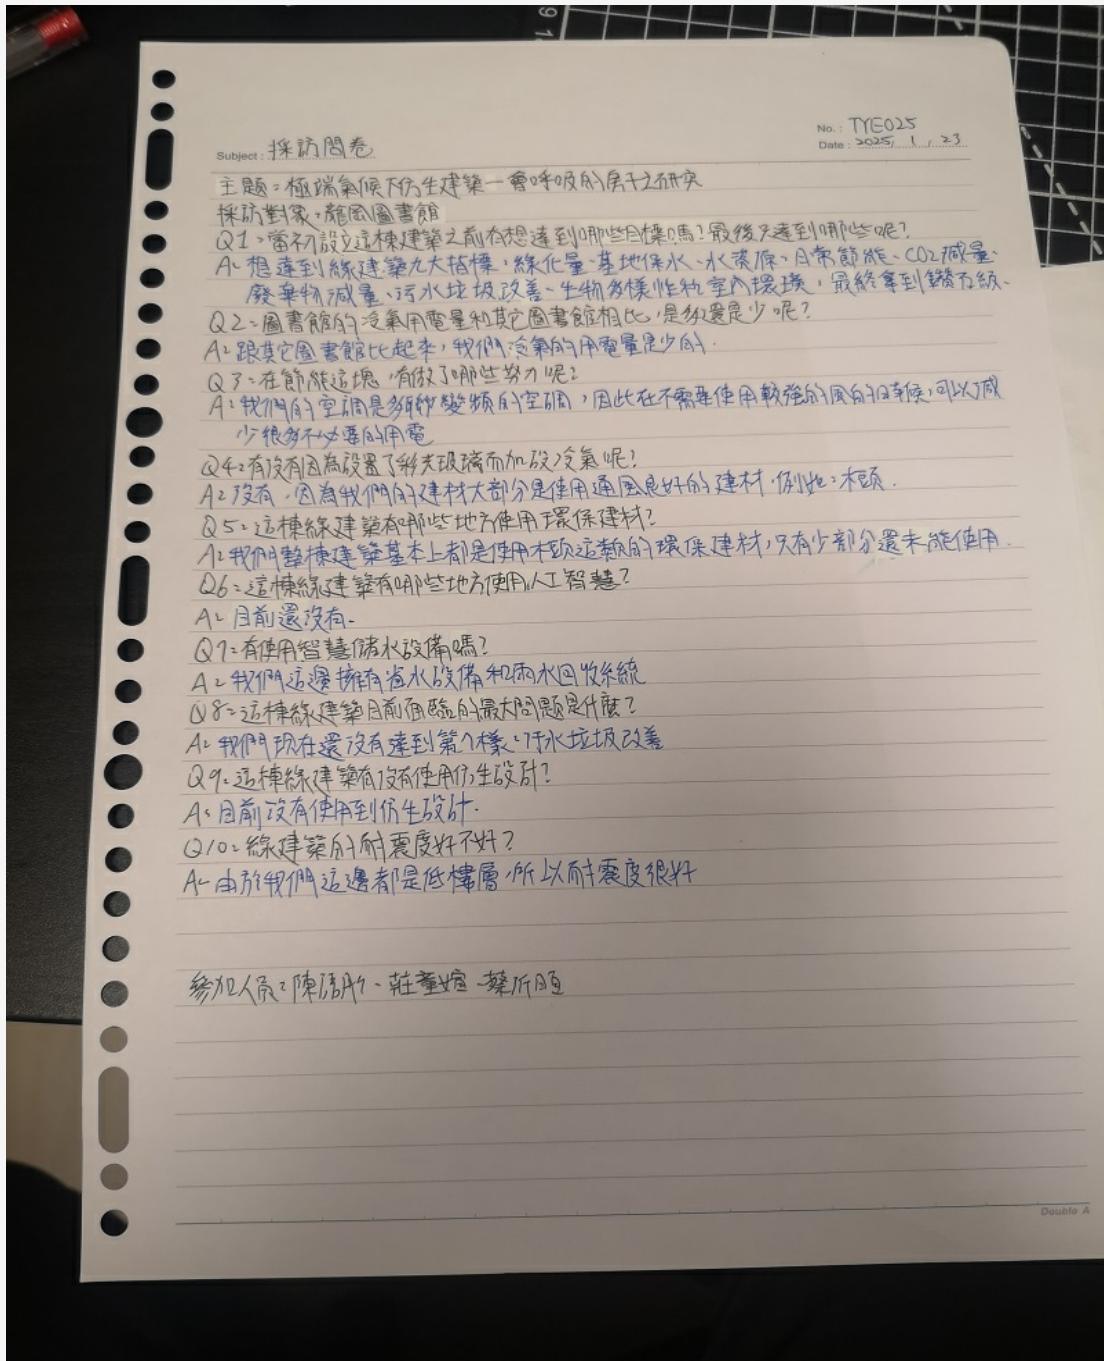 9
No.: TYE025
Subject: 採訪問卷
Date: 2025, 1, 23
主題:極端氣候下仿生建築—會呼吸的房子之研究
採訪對象:龍岡圖書館
Q1:當初設立這棟建築之前有想達到哪些目標嗎?最後又達到哪些呢?
A:想達到綠建築九大指標:綠化量、基地保水、水資源、日常節能、CO2減量、
廢棄物減量、污水垃圾改善、生物多樣性和室內環境,最終拿到鑽石級、
Q2:圖書館的冷氣用電量和其它圖書館相比,是多還是少呢?
A:跟其它圖書館比起來,我們冷氣的用電量是少的.
Q3:在節能這塊,有做了哪些努力呢?
A:我們的空調是多聯變頻的空調,因此在不需要使用較強的風的時候,可以減
少很多不必要的用電
Q4:有沒有因為設置了彩光玻璃而加設冷氣呢?
A:沒有,因為我們的建材大部分是使用通風良好的建材,例如:木頭.
Q5:這棟綠建築有哪些地方使用環保建材?
A:我們整棟建築基本上都是使用木頭這類的環保建材,只有少部分還未能使用.
Q6:這棟綠建築有哪些地方使用人工智慧?
A:目前還沒有.
Q7:有使用智慧儲水設備嗎?
A:我們這邊擁有省水設備和雨水回收系統
Q8:這棟綠建築目前面臨的最大問題是什麼?
A:我們現在還沒有達到第7樣:污水垃圾改善
Q9:這棟綠建築有沒有使用仿生設計?
A:目前沒有使用到仿生設計.
Q10:綠建築的耐震度好不好?
A:由於我們這邊都是低樓層,所以耐震度很好
參加人員:陳、莊、蔡
Double A